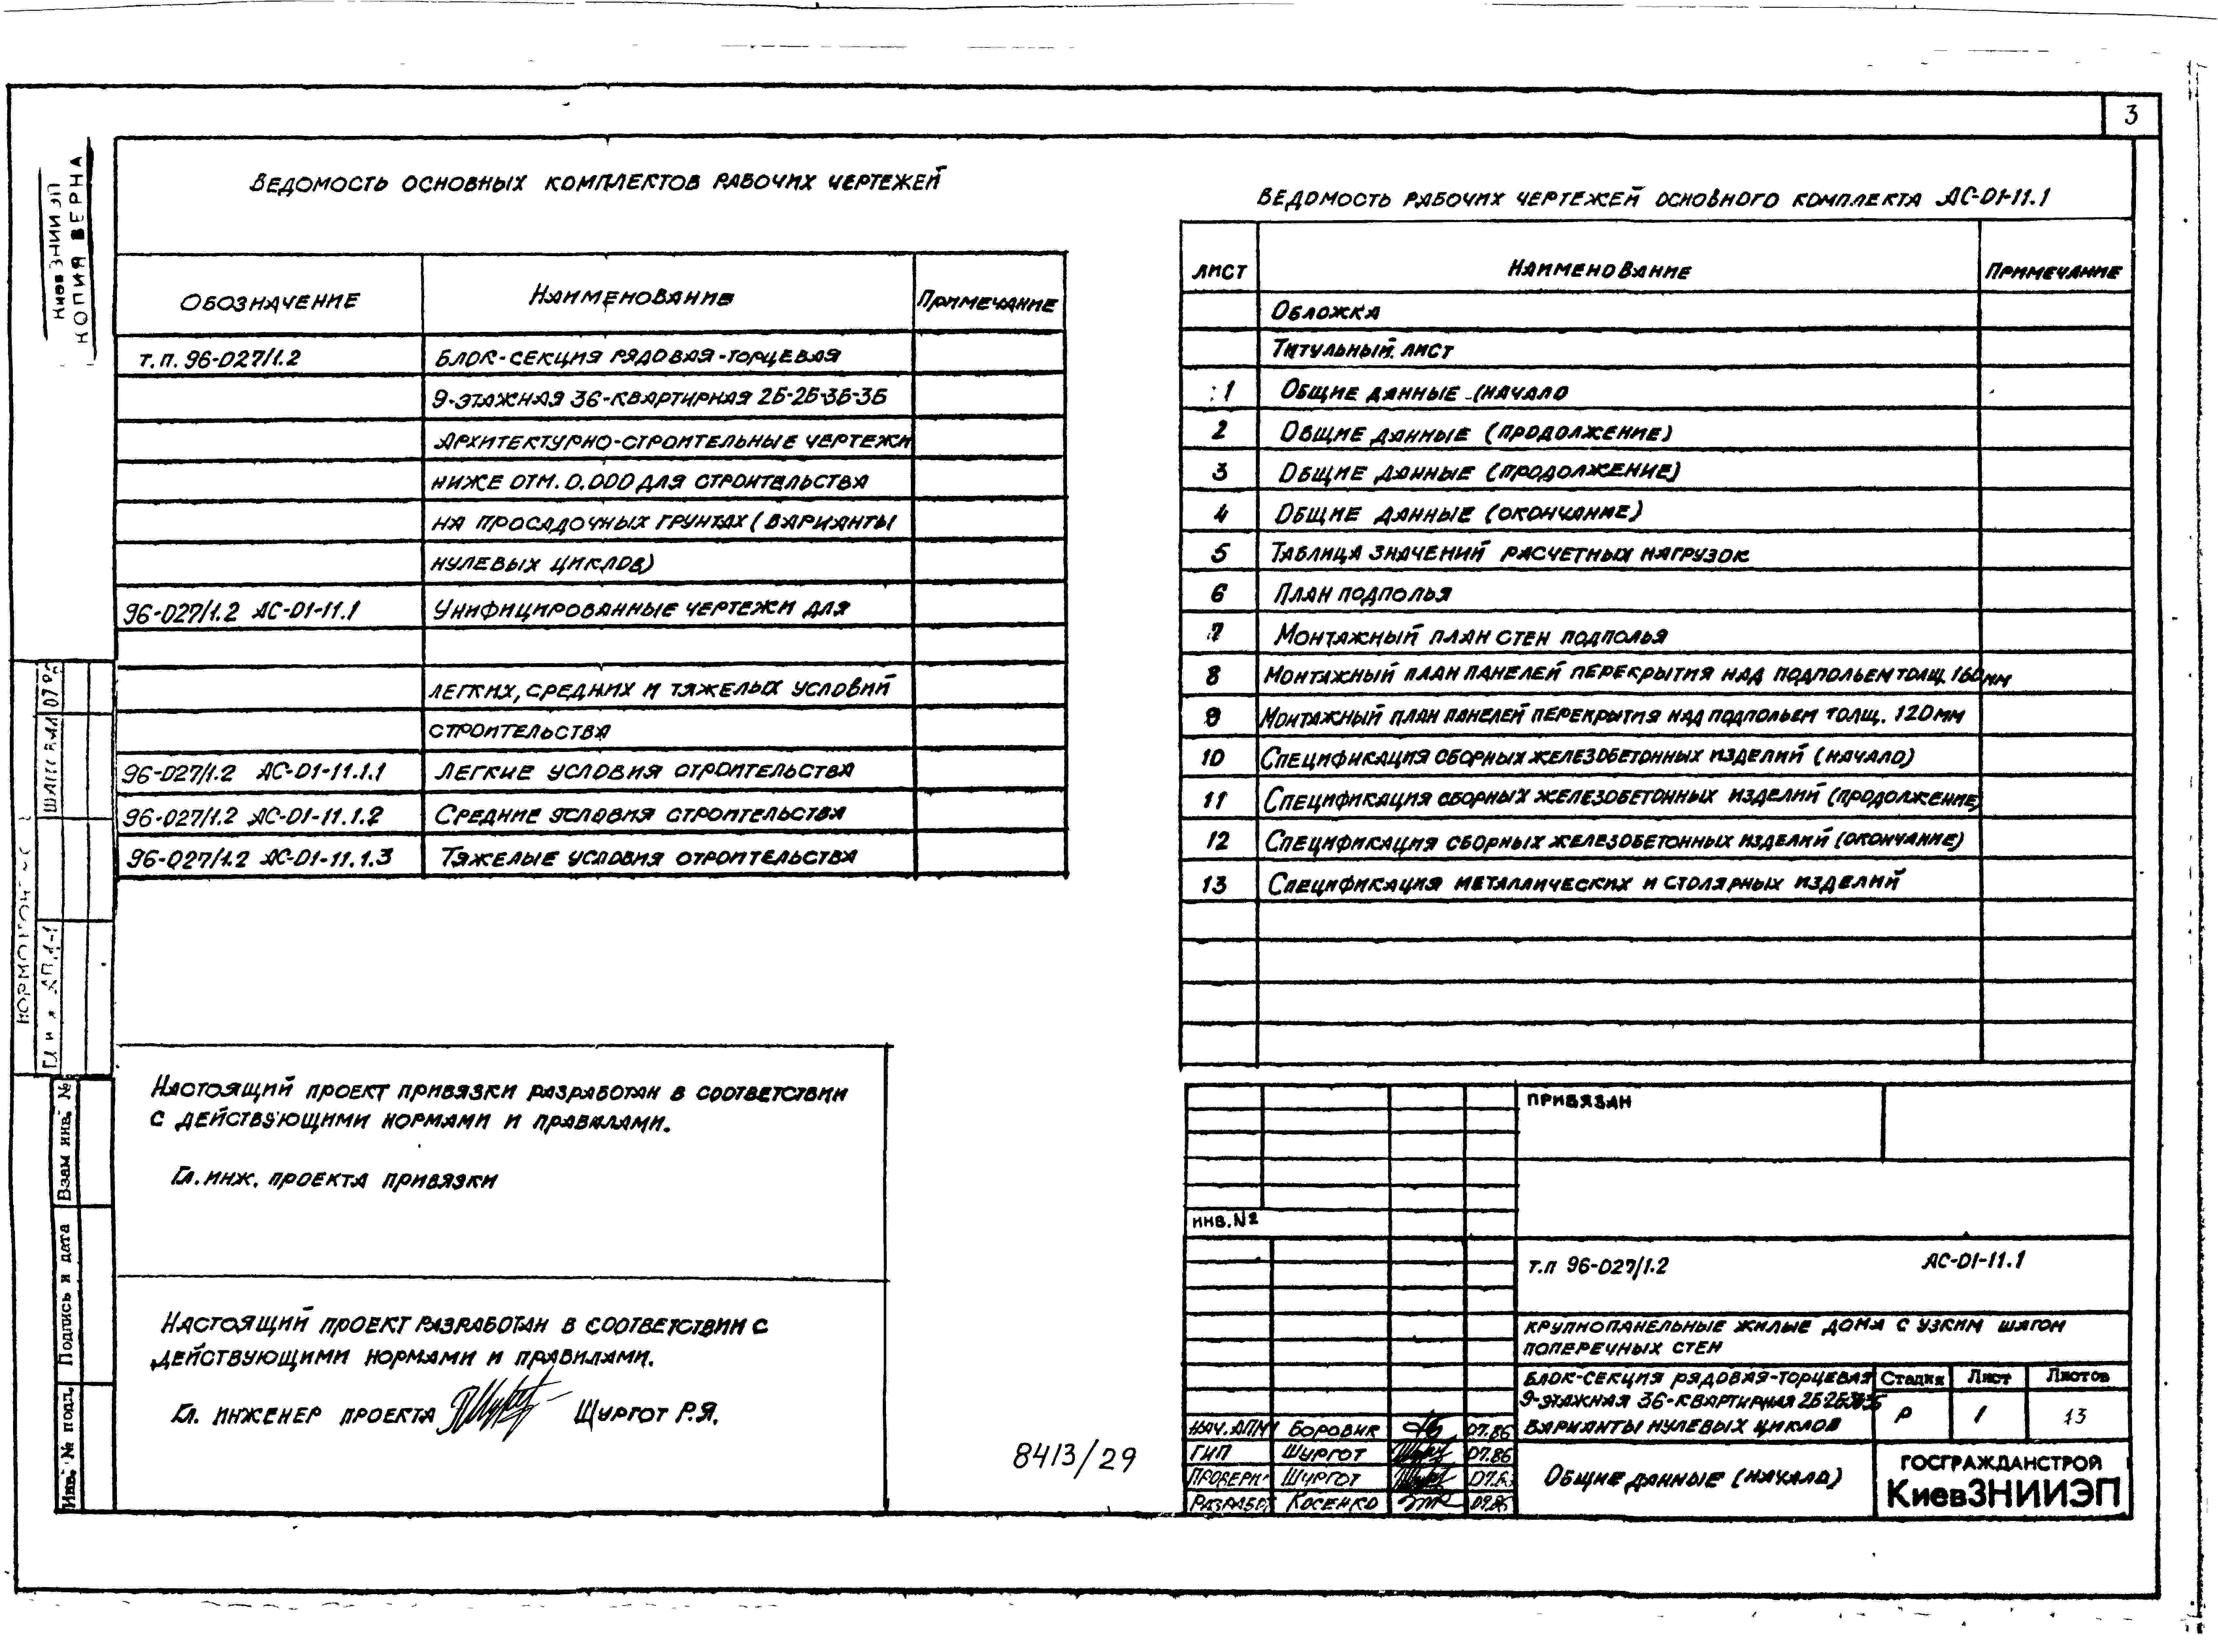 3
КиевЗНИИЭП
КОПИЯ ВЕРНА
ВЕДОМОСТЬ ОСНОВНЫХ КОМПЛЕКТОВ РАБОЧИХ ЧЕРТЕЖЕЙ
ОБОЗНАЧЕНИЕ НАИМЕНОВАНИЕ ПРИМЕЧАНИЕ
Т.П. 96-027/1.2 БЛОК-СЕКЦИЯ РЯДОВАЯ-ТОРЦЕВАЯ
9-ЭТАЖНАЯ 36-КВАРТИРНАЯ 2Б-2Б-3Б-3Б
АРХИТЕКТУРНО-СТРОИТЕЛЬНЫЕ ЧЕРТЕЖИ
НИЖЕ ОТМ. 0.000 ДЛЯ СТРОИТЕЛЬСТВА
НА ПРОСАДОЧНЫХ ГРУНТАХ (ВАРИАНТЫ
НУЛЕВЫХ ЦИКЛОВ)
96-027/1.2 АС-01-11.1 УНИФИЦИРОВАННЫЕ ЧЕРТЕЖИ ДЛЯ
ЛЕГКИХ, СРЕДНИХ И ТЯЖЕЛЫХ УСЛОВИЙ
СТРОИТЕЛЬСТВА
96-027/1.2 АС-01-11.1.1 ЛЕГКИЕ УСЛОВИЯ СТРОИТЕЛЬСТВА
96-027/1.2 АС-01-11.1.2 СРЕДНИЕ УСЛОВИЯ СТРОИТЕЛЬСТВА
96-027/1.2 АС-01-11.1.3 ТЯЖЕЛЫЕ УСЛОВИЯ СТРОИТЕЛЬСТВА
ВЕДОМОСТЬ РАБОЧИХ ЧЕРТЕЖЕЙ ОСНОВНОГО КОМПЛЕКТА АС-01-11.1
ЛИСТ НАИМЕНОВАНИЕ ПРИМЕЧАНИЕ
ОБЛОЖКА
ТИТУЛЬНЫЙ ЛИСТ
1 ОБЩИЕ ДАННЫЕ (НАЧАЛО
2 ОБЩИЕ ДАННЫЕ (ПРОДОЛЖЕНИЕ)
3 ОБЩИЕ ДАННЫЕ (ПРОДОЛЖЕНИЕ)
4 ОБЩИЕ ДАННЫЕ (ОКОНЧАНИЕ)
5 ТАБЛИЦА ЗНАЧЕНИЙ РАСЧЕТНЫХ НАГРУЗОК
6 ПЛАН ПОДПОЛЬЯ
7 МОНТАЖНЫЙ ПЛАН СТЕН ПОДПОЛЬЯ
8 МОНТАЖНЫЙ ПЛАН ПАНЕЛЕЙ ПЕРЕКРЫТИЯ НАД ПОДПОЛЬЕМ ТОЛЩ. 160 ММ
9 МОНТАЖНЫЙ ПЛАН ПАНЕЛЕЙ ПЕРЕКРЫТИЯ НАД ПОДПОЛЬЕМ ТОЛЩ. 120 ММ
10 СПЕЦИФИКАЦИЯ СБОРНЫХ ЖЕЛЕЗОБЕТОННЫХ ИЗДЕЛИЙ (НАЧАЛО)
11 СПЕЦИФИКАЦИЯ СБОРНЫХ ЖЕЛЕЗОБЕТОННЫХ ИЗДЕЛИЙ (ПРОДОЛЖЕНИЕ)
12 СПЕЦИФИКАЦИЯ СБОРНЫХ ЖЕЛЕЗОБЕТОННЫХ ИЗДЕЛИЙ (ОКОНЧАНИЕ)
13 СПЕЦИФИКАЦИЯ МЕТАЛЛИЧЕСКИХ И СТОЛЯРНЫХ ИЗДЕЛИЙ
НАСТОЯЩИЙ ПРОЕКТ ПРИВЯЗКИ РАЗРАБОТАН В СООТВЕТСТВИИ
С ДЕЙСТВУЮЩИМИ НОРМАМИ И ПРАВИЛАМИ.
ГЛ. ИНЖ. ПРОЕКТА ПРИВЯЗКИ
НАСТОЯЩИЙ ПРОЕКТ РАЗРАБОТАН В СООТВЕТСТВИИ С
ДЕЙСТВУЮЩИМИ НОРМАМИ И ПРАВИЛАМИ.
ГЛ. ИНЖЕНЕР ПРОЕКТА ЩУРГОТ Р.Я.
8413/29
Взам инв. №
Подпись и дата
Инв. № подл.
ПРИВЯЗАН
ИНВ. №
Т.П 96-027/1.2 АС-01-11.1
КРУПНОПАНЕЛЬНЫЕ ЖИЛЫЕ ДОМА С УЗКИМ ШАГОМ
ПОПЕРЕЧНЫХ СТЕН
БЛОК-СЕКЦИЯ РЯДОВАЯ-ТОРЦЕВАЯ
9-ЭТАЖНАЯ 36-КВАРТИРНАЯ 2Б-2Б-3Б-3Б
ВАРИАНТЫ НУЛЕВЫХ ЦИКЛОВ
Стадия Лист Листов
Р 1 13
НАЧ. АПМ БОРОВИК 07.86
ГИП ЩУРГОТ 07.86
ПРОВЕРИЛ ЩУРГОТ
РАЗРАБОТ КОСЕНКО
ОБЩИЕ ДАННЫЕ (НАЧАЛО)
ГОСГРАЖДАНСТРОЙ
КиевЗНИИЭП